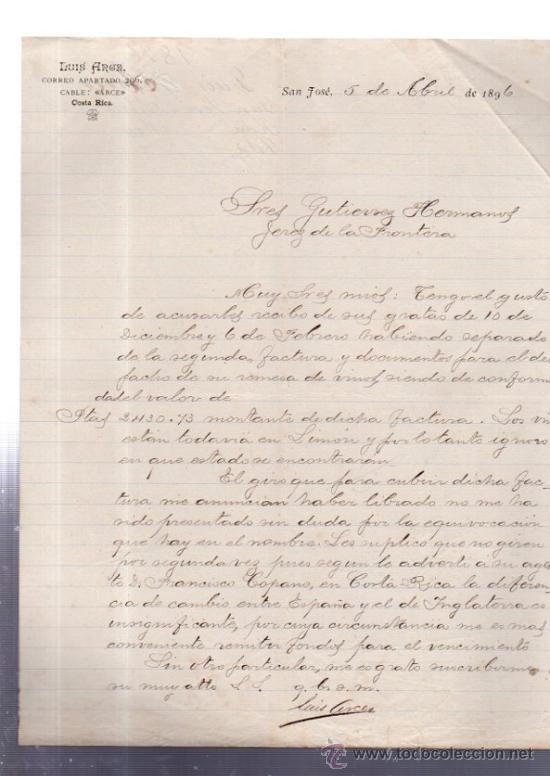 LUIS ARCE.
CORREO APARTADO 209.
CABLE: «ARCE»
Costa Rica.
San José, 5 de Abril de 1896
Sres Gutierrez Hermanos
Jerez de la Frontera
Muy Sres mios: Tengo el gusto
de acusarles recibo de sus gratas de 10 de
Diciembre y 6 de Febrero habiendo separado
de la segunda, factura y documentos para el des
pacho de su remesa de vinos siendo de conformi
dad el valor de
Ptas 2430.73 montante de dicha factura. Los vin
están todavia en Limón y por lo tanto ignoro
en que estado se encontraran.
El giro que para cubrir dicha fac-
tura me anuncian haber librado no me ha
sido presentado sin duda por la equivocación
que hay en el nombre. Les suplico que no giren
por segunda vez pues segun le adverti a su agen
te D. Francisco Cópano, en Costa Rica la diferen
cia de cambio entre España y el de Inglaterra es
insignificante, por cuya circunstancia me es mas
conveniente remitir fondos para el vencimiento
Sin otro particular, me es grato suscribirme
su muy atto S. S. q. b. s. m.
Luis Arce
todocoleccion.net